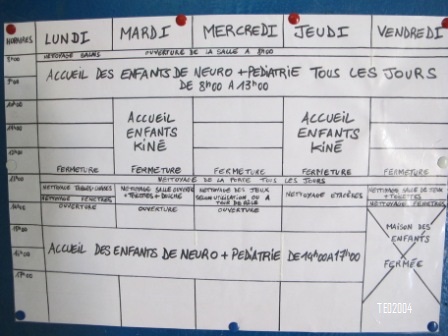 HORAIRES LUNDI MARDI MERCREDI JEUDI VENDREDI
8H00 NETTOYAGE BALLONS OUVERTURE DE LA SALLE A 8H00
9H00 ACCUEIL DES ENFANTS DE NEURO + PEDIATRIE TOUS LES JOURS
DE 8H00 A 13H00
10H00
ACCUEIL ACCUEIL
11H00 ENFANTS ENFANTS
KINÉ KINÉ
FERMETURE FERMETURE FERMETURE FERMETURE FERMETURE
13H00 NETTOYAGE DE LA PORTE TOUS LES JOURS
NETTOYAGE TABLES/CHAISES NETTOYAGE SALLE NETTOYAGE DES JEUX NETTOYAGE ETAGÈRES NETTOYAGE SALLE DE
NETTOYAGE FENETRES SELON UTILISATION OU A NETTOYAGE FENETRES
14H00 OUVERTURE OUVERTURE OUVERTURE
15H00 MAISON DES
ENFANTS
16H00 ACCUEIL DES ENFANTS DE NEURO + PEDIATRIE DE 14H00 A 17H00
FERMÉE
17H00
TEO2004